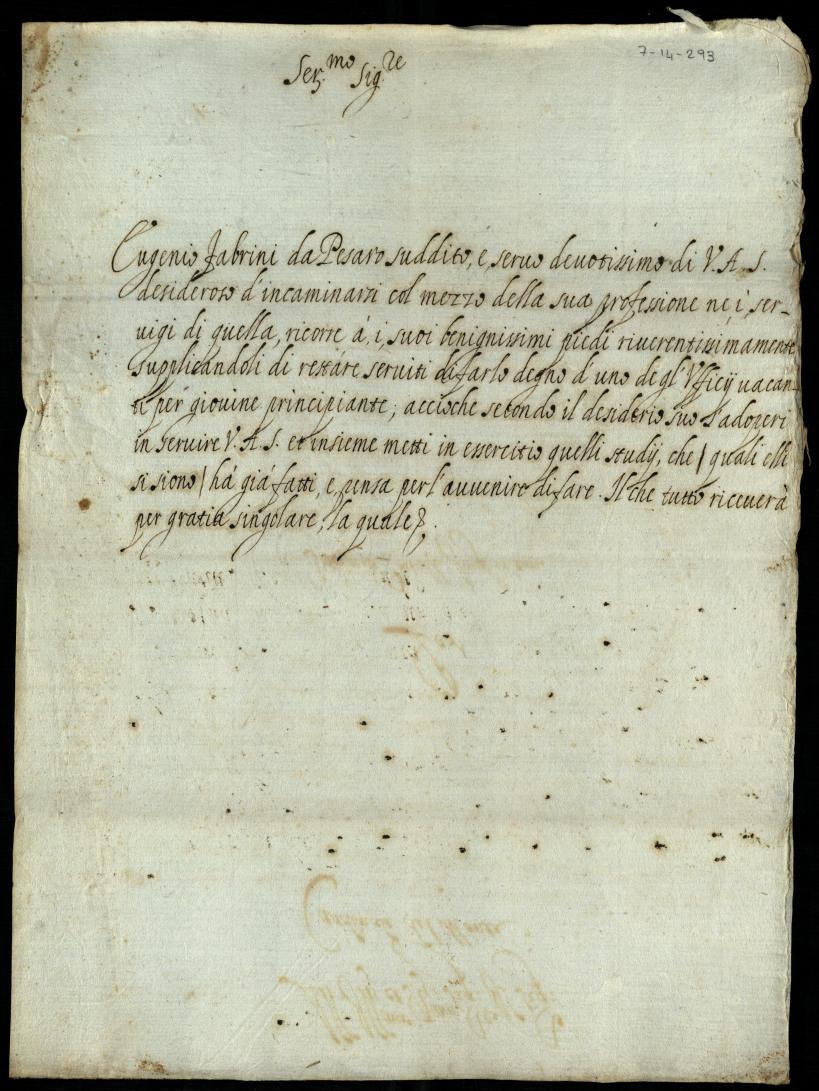 7-14-293
Ser.mo Sig.re
Eugenio Fabrini da Pesaro suddito, e, seruo deuotissimo di V. A. S.
desideroso d'incaminarsi col mezzo della sua professione ne i, ser-
uigi di quella, ricorre à, i, suoi benignissimi piedi riuerentissimamente
supplicandoli di restare seruiti di farlo degno d'uno degl'Vfficij uacan-
ti per giouine principiante; accioche secondo il desiderio suo s'adoperi
in seruire V. A. S. et insieme metti in essercitio quelli studij, che / quali elli
si siono / hà già fatti, e, pensa per l'auuenire di fare. Il che tutto riceuerà
per gratia singolare, la quale &.